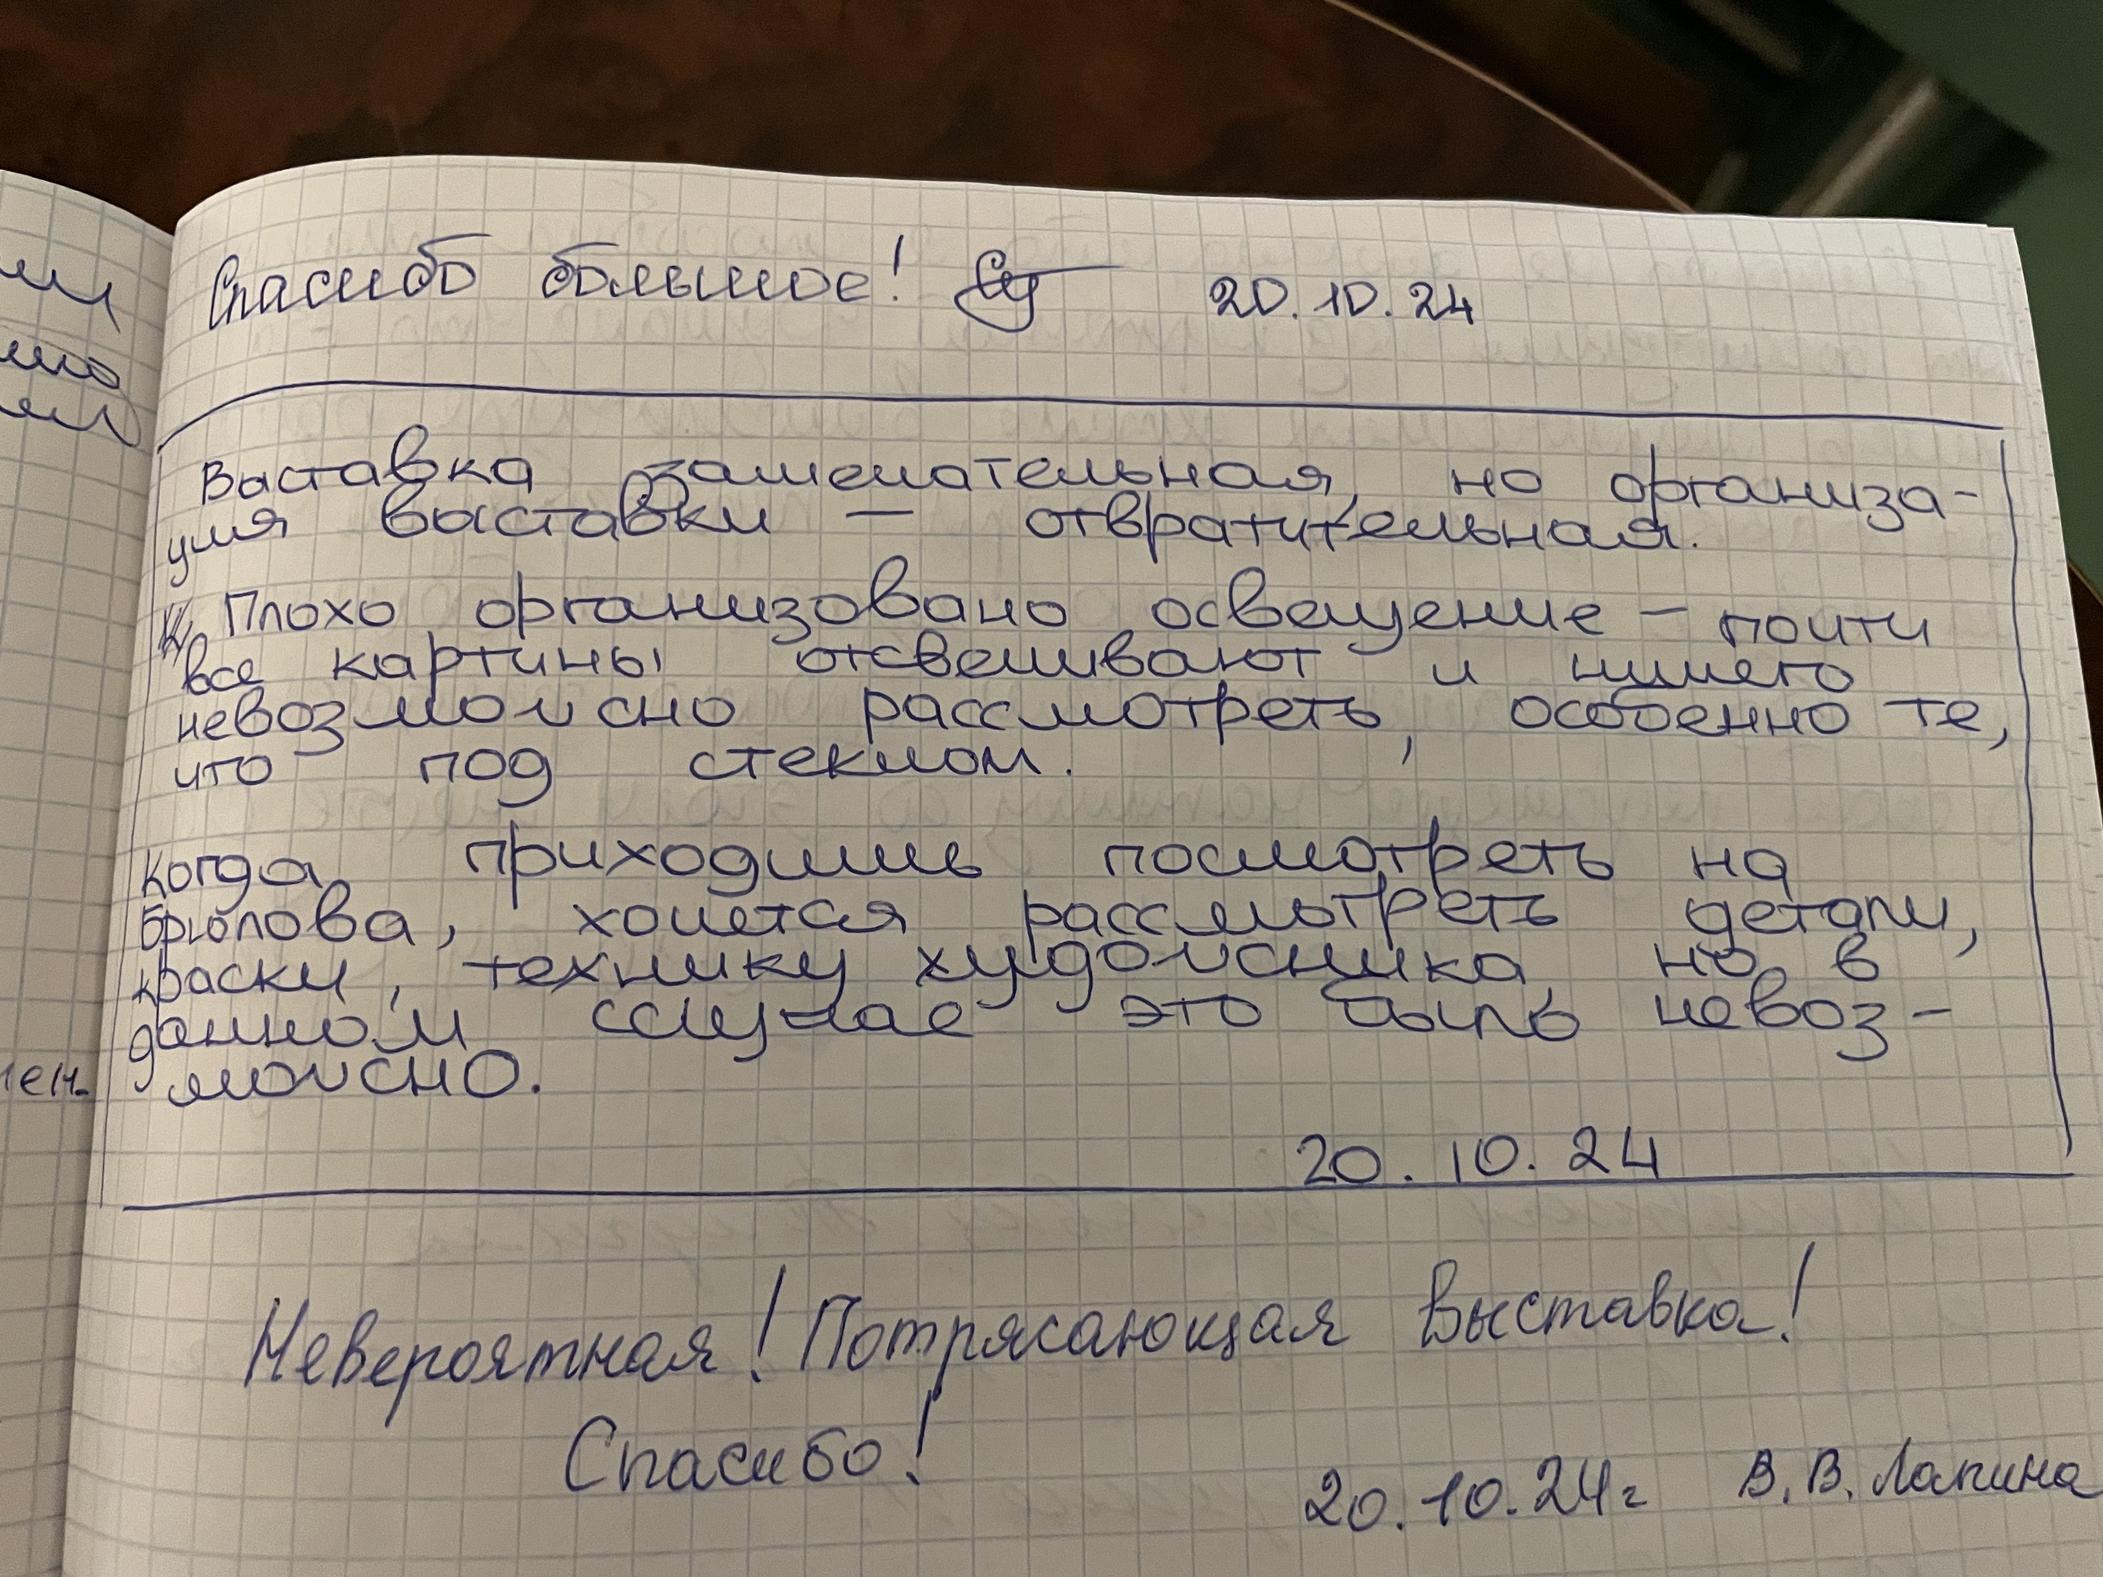 Спасибо большое! 20.10.24
Выставка замечательная, но организа-
ция выставки — отвратительная.
Плохо организовано освещение — почти
все картины отсвечивают и ничего
невозможно рассмотреть, особенно те,
что под стеклом.
когда приходишь посмотреть на
Брюлова, хочется рассмотреть детали,
краски, технику художника, но в
данном случае это быль невоз-
можно.
20.10.24
Невероятная! Потрясающая выставка!
Спасибо!
20.10.24г В.В. Лапина